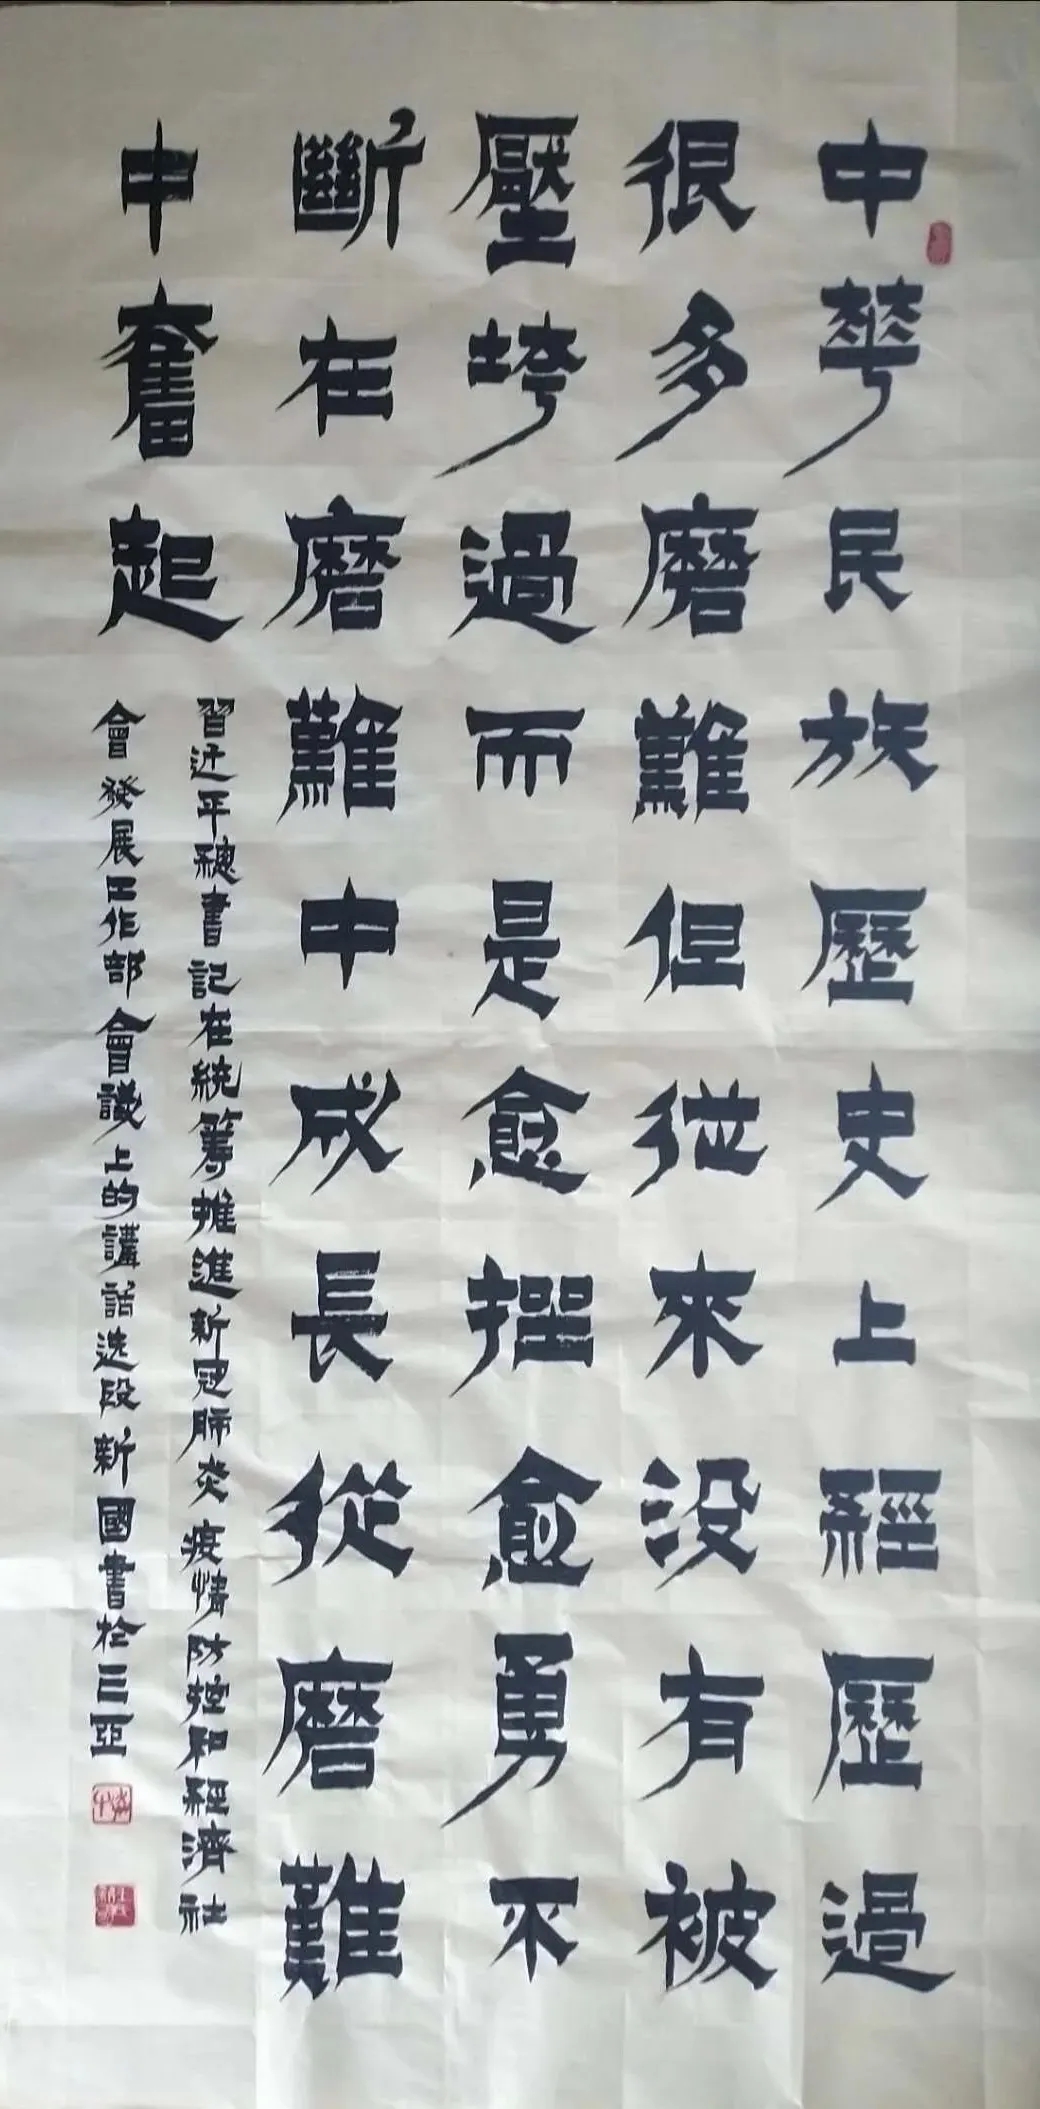 中華民族歷史上經歷過
很多磨難但從來没有被
壓垮過而是愈挫愈勇不
斷在磨難中成長從磨難
中奮起
習近平總書記在統籌推進新冠肺炎疫情防控和經濟社
會發展工作部會議上的講話选段新國書於三亞